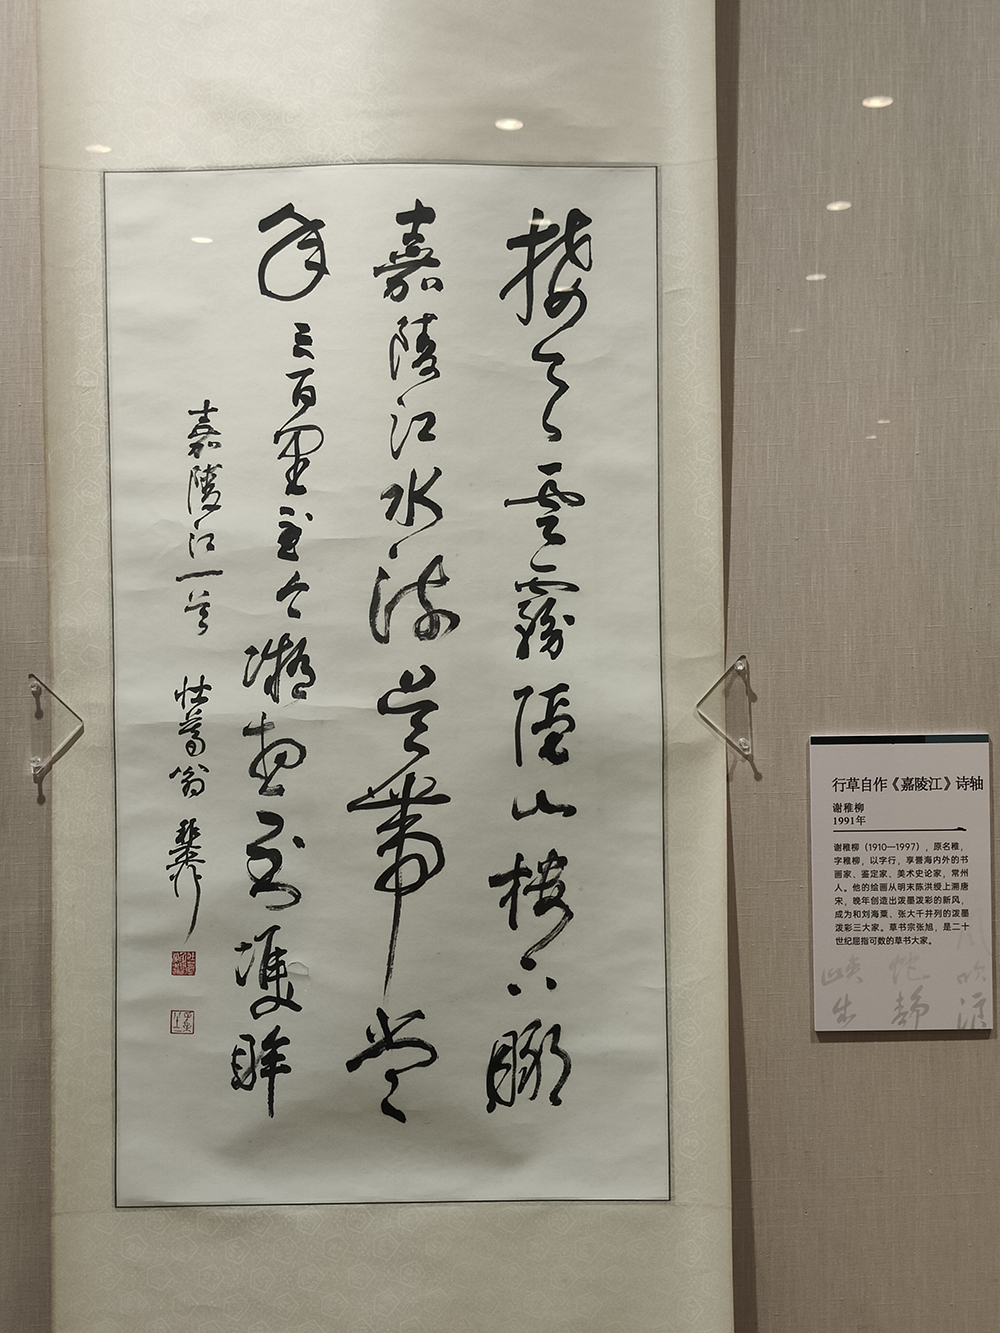 接天雲霧隱山樓下瞰
嘉陵江水流帶當
年三百里至今凝想到雙眸
嘉陵江一首 壯暮翁 稚柳
行草自作《嘉陵江》诗轴
谢稚柳
1991年
谢稚柳（1910—1997），原名稚，
字稚柳，以字行，享誉海内外的书
画家、鉴定家、美术史论家，常州
人。他的绘画从明末陈洪绶上溯唐
宋，晚年创造出泼墨泼彩的新风，
成为和刘海粟、张大千并列的泼墨
泼彩三大家。草书宗张旭，是二十
世纪屈指可数的草书大家。